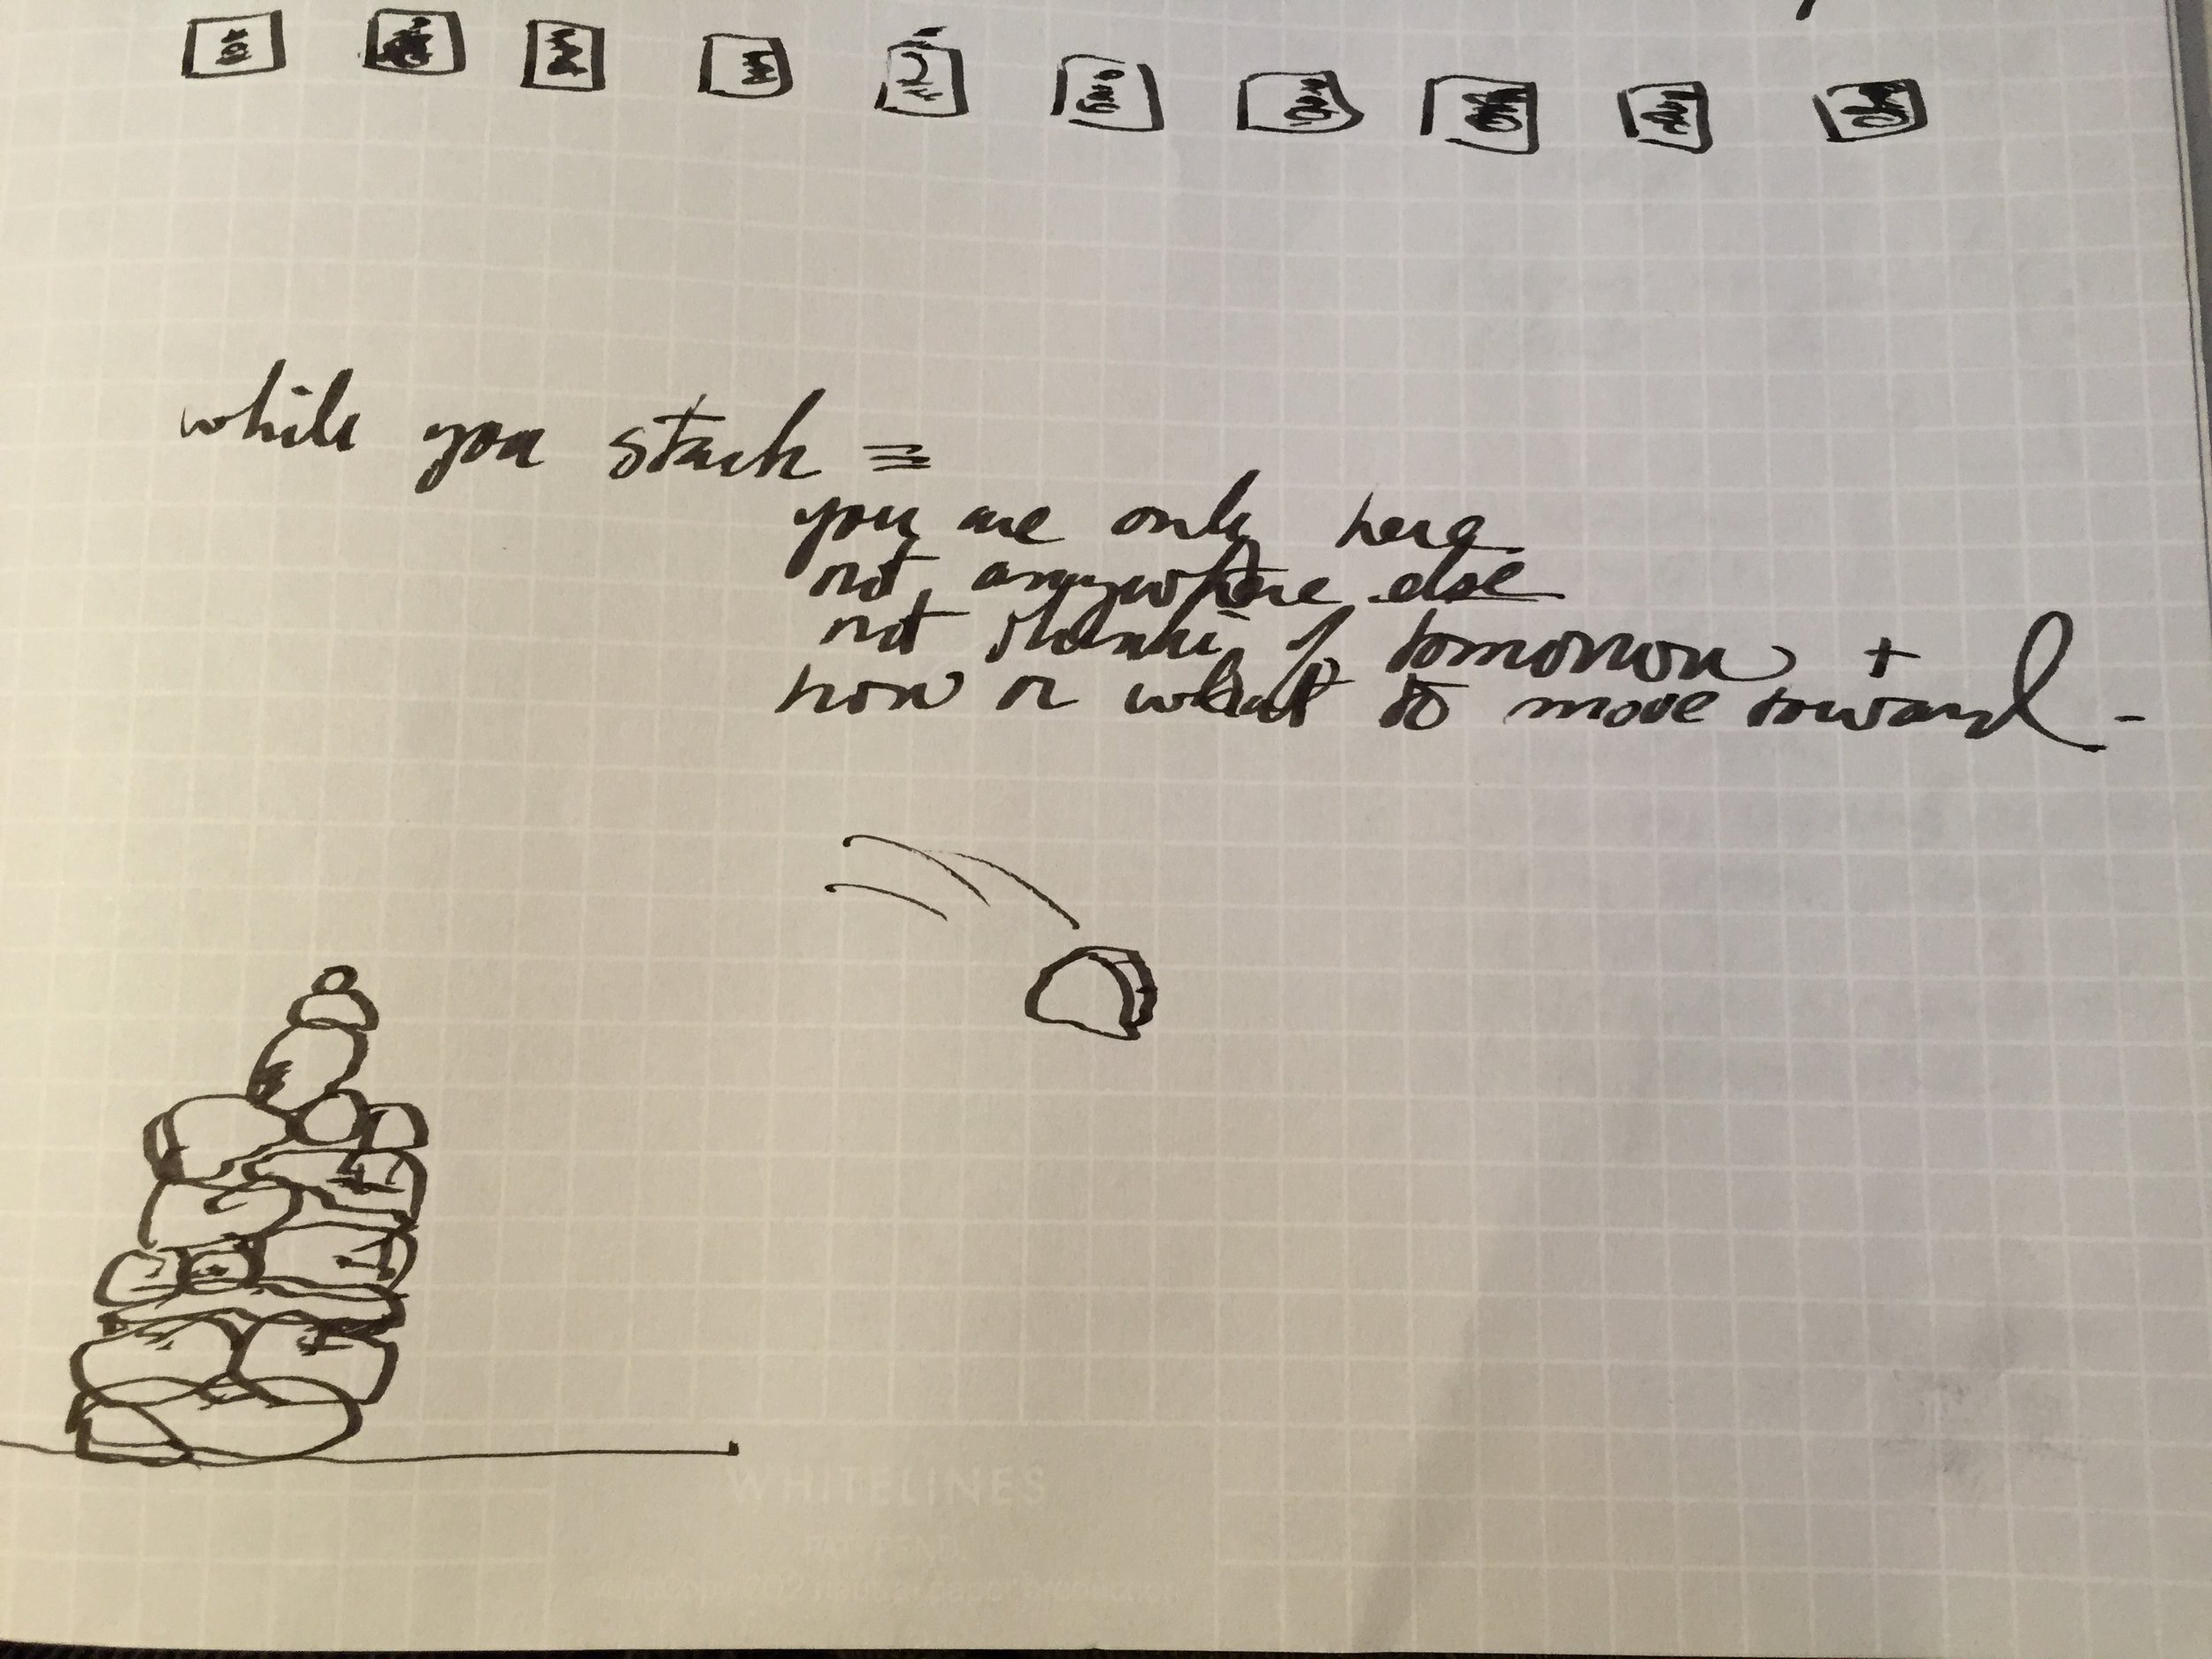 while you stack =
you are only here
not anywhere else
not thinking of tomorrow +
how or what to move toward -
WHITELINES
PAT PEND.